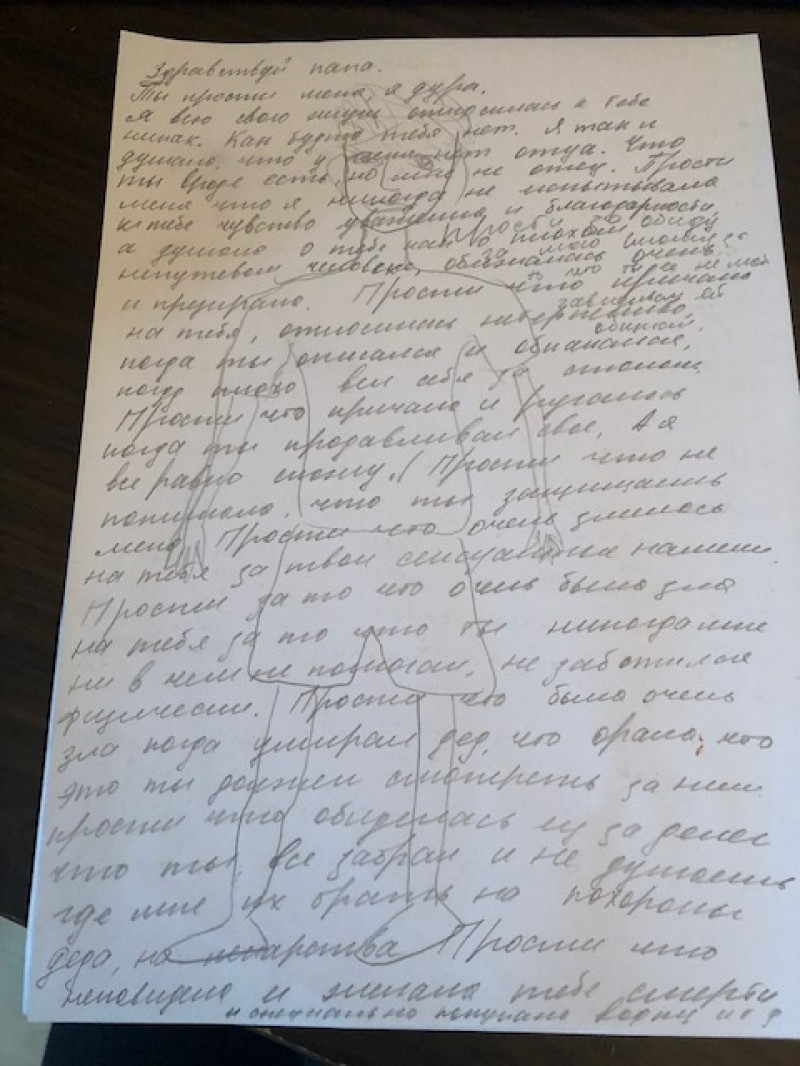 Здравствуй папа.
Ты прости меня, я дура.
Я всю свою жизнь относилась к тебе
никак. Как будто тебя нет. Я так и
думала, что у меня нет отца. Что
ты вроде есть, но мне не отец. Прости
меня что я никогда не испытывала
к тебе чувство уважения и благодарности
а думала о тебе как о плохом
Прости за обиду
непутевом человеке, обзывалась очень
за мою
и презирала. Прости что кричала
то что ты не мой
на тебя, относилась
когда ты описался и обкакался,
когда плохо вел себя за столом
Прости что кричала и ругалась
когда ты продавливал свое, А я
все равно Прости что не
понимала, что ты защищаешь
меня Прости что очень злилась
на тебя за твои сексуальные
Прости за то что очень была зла
на тебя за то что ты никогда мне
ни в чем не помогал, не заботился
физически. Прости что была очень
зла когда умирал дед, что орала, что
это ты должен смотреть за ним
прости что обиделась за денег
что ты все забрал и не думаешь
где мне их брать на похороны
деда, на лекарства Прости что
ненавидела и желала тебе смерти
и специально покупала водку и т д